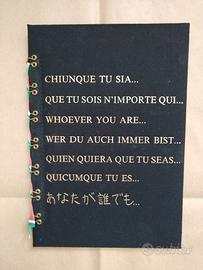 CHIUNQUE TU SIA...
QUE TU SOIS N'IMPORTE QUI...
WHOEVER YOU ARE...
WER DU AUCH IMMER BIST...
QUIEN QUIERA QUE TU SEAS...
QUICUMQUE TU ES...
あなたが誰でも...
subito